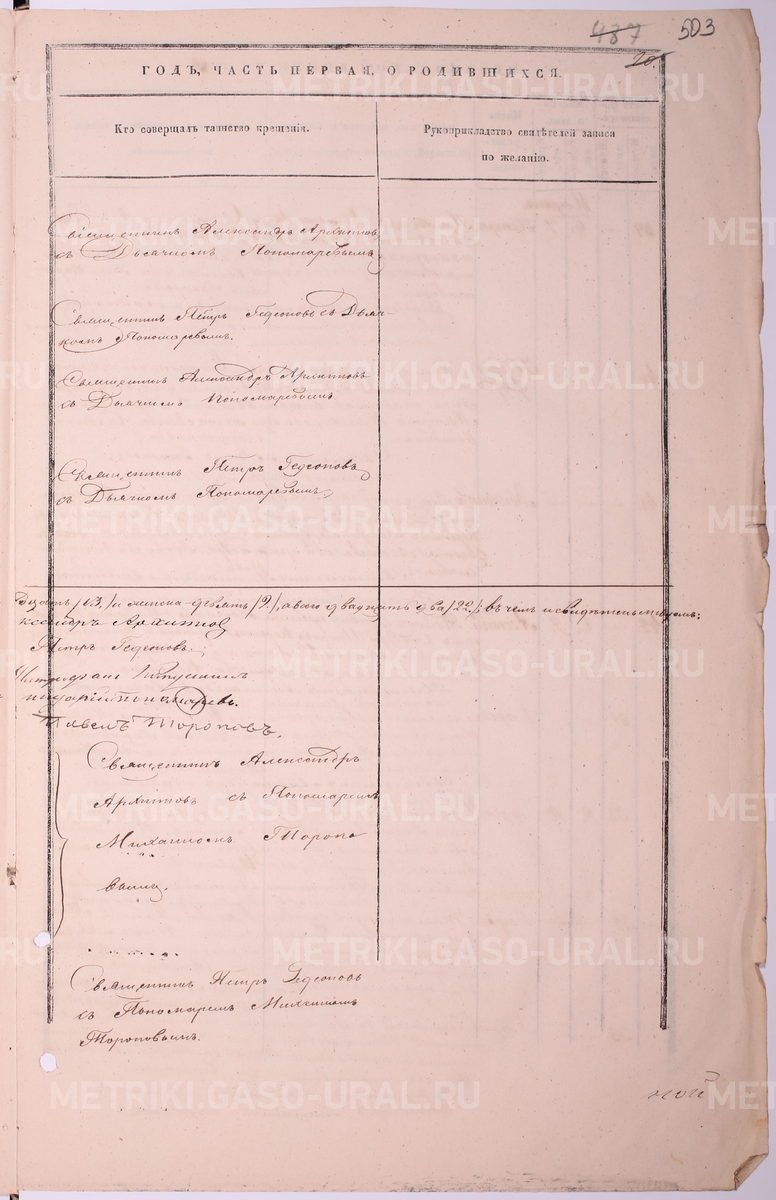 487 503
20.
ГОДЪ, ЧАСТЬ ПЕРВАЯ, О РОДИВШИХСЯ.
Кто совершалъ таинство крещенія.
Рукоприкладство свидѣтелей записи
по желанію.
Священникъ Александръ Архиповъ
съ Дьячкомъ Пономаревымъ
Священникъ Петръ Гедеоновъ съ Дьяч-
комъ Пономаревымъ.
Священникъ Александръ Архиповъ
съ Дьячкомъ Пономаревымъ
Священникъ Петръ Гедеоновъ
съ Дьячкомъ Пономаревымъ
/13./ и женска девять /9./, а всего двадцать два /22./; въ чемъ и свидѣтельствуемъ:
ксандръ Архиповъ
Петръ Гедеоновъ.
Пономаревъ.
Павелъ Тороповъ.
Священникъ Александръ
Архиповъ съ Пономаремъ
Михаиломъ Торопо
вымъ.
Священникъ Петръ Гедеоновъ
съ Пономаремъ Михаиломъ
Тороповымъ.
METRIKI.GASO-URAL.RU